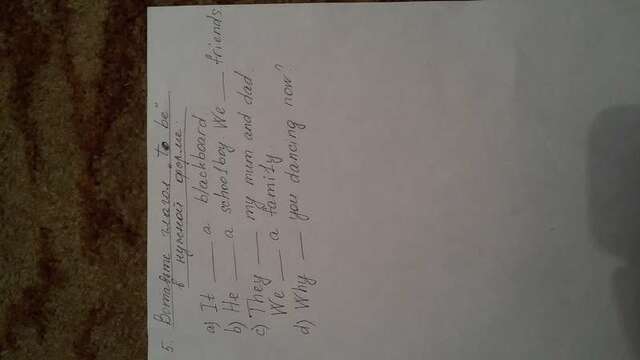 5. Вставьте глагол „to be"
в нужной форме
a) It ___ a blackboard
b) He ___ a schoolboy We ___ friends
c) They ___ my mum and dad.
We ___ a family
d) Why ___ you dancing now?